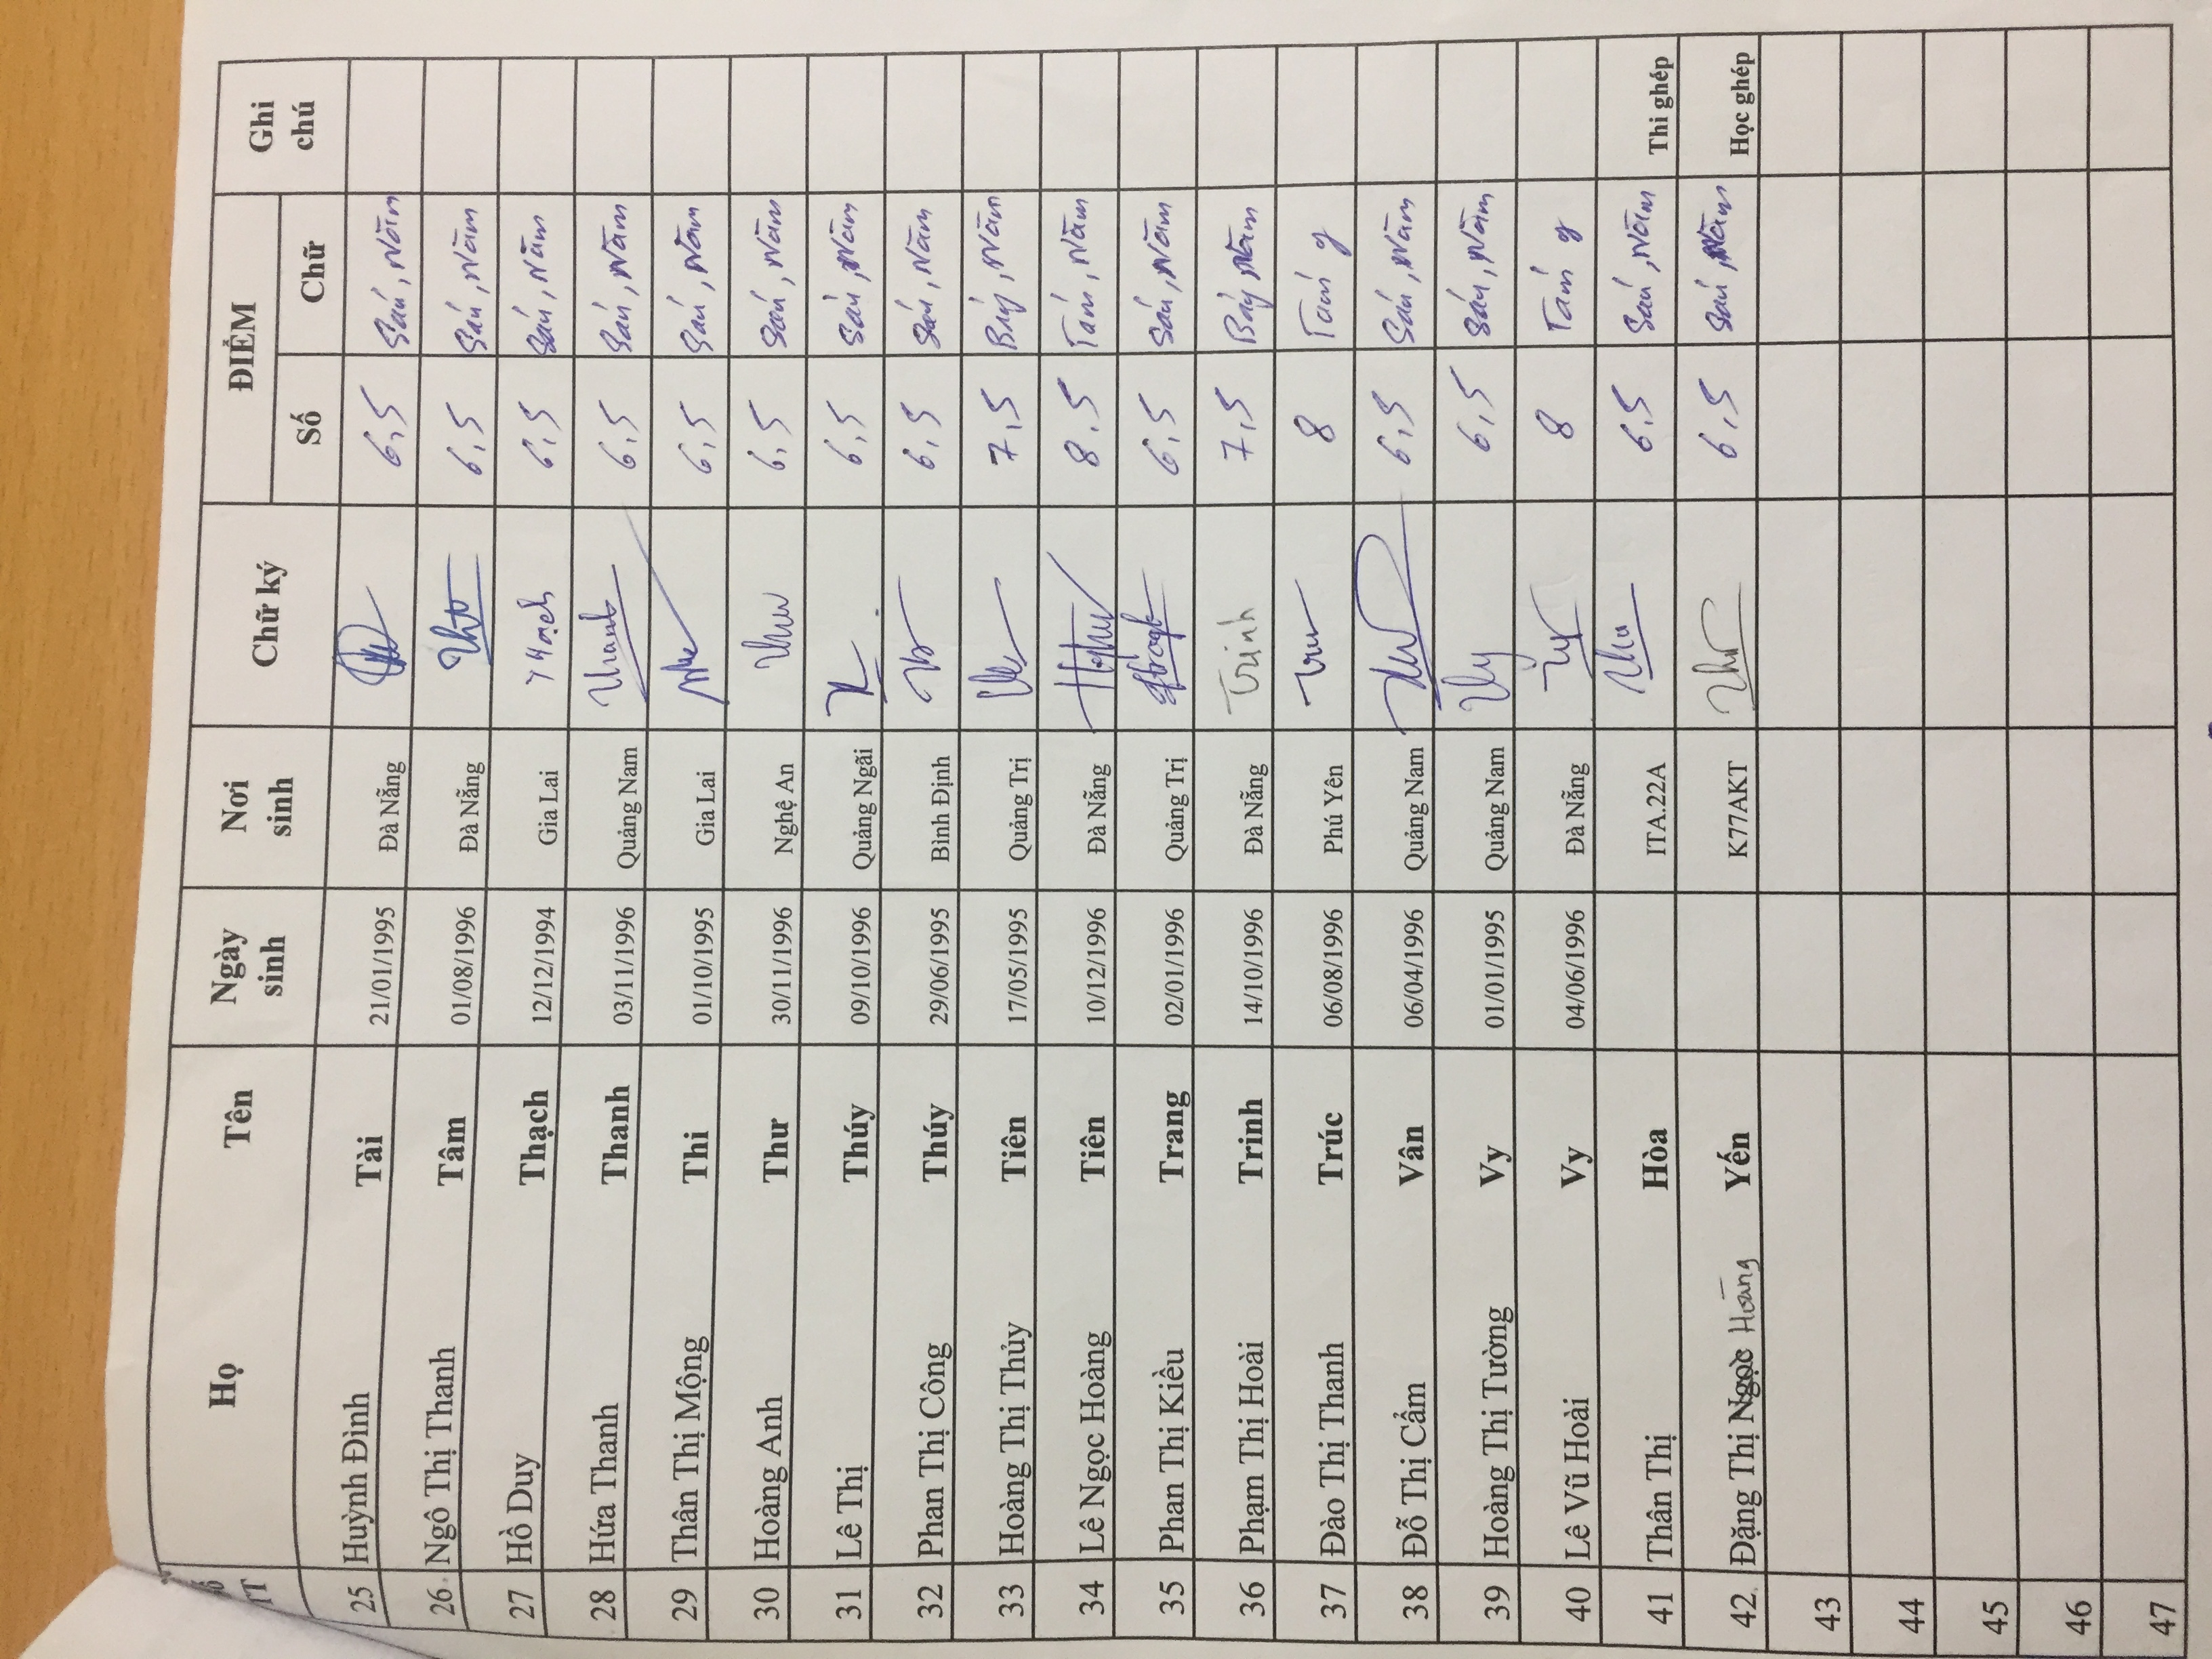 Số TT Họ Tên Ngày sinh Nơi sinh Chữ ký ĐIỂM Ghi chú
Số Chữ
25 Huỳnh Đình Tài 21/01/1995 Đà Nẵng 6,5 Sáu, Năm
26 Ngô Thị Thanh Tâm 01/08/1996 Đà Nẵng 6,5 Sáu, Năm
27 Hồ Duy Thạch 12/12/1994 Gia Lai Thạch 6,5 Sáu, Năm
28 Hứa Thanh Thanh 03/11/1996 Quảng Nam Thanh 6,5 Sáu, Năm
29 Thân Thị Mộng Thi 01/10/1995 Gia Lai 6,5 Sáu, Năm
30 Hoàng Anh Thư 30/11/1996 Nghệ An Thư 6,5 Sáu, Năm
31 Lê Thị Thúy 09/10/1996 Quảng Ngãi 6,5 Sáu, Năm
32 Phan Thị Công Thúy 29/06/1995 Bình Định 6,5 Sáu, Năm
33 Hoàng Thị Thủy Tiên 17/05/1995 Quảng Trị 7,5 Bảy, Năm
34 Lê Ngọc Hoàng Tiên 10/12/1996 Đà Nẵng 8,5 Tám, Năm
35 Phan Thị Kiều Trang 02/01/1996 Quảng Trị 6,5 Sáu, Năm
36 Phạm Thị Hoài Trinh 14/10/1996 Đà Nẵng Trinh 7,5 Bảy, Năm
37 Đào Thị Thanh Trúc 06/08/1996 Phú Yên 8 Tám
38 Đỗ Thị Cẩm Vân 06/04/1996 Quảng Nam 6,5 Sáu, Năm
39 Hoàng Thị Tường Vy 01/01/1995 Quảng Nam Vy 6,5 Sáu, Năm
40 Lê Vũ Hoài Vy 04/06/1996 Đà Nẵng 8 Tám
41 Thân Thị Hòa ITA.22A 6,5 Sáu, Năm Thi ghép
42 Đặng Thị Ngọc Hoàng Yến K77AKT 6,5 Sáu, Năm Học ghép
43
44
45
46
47